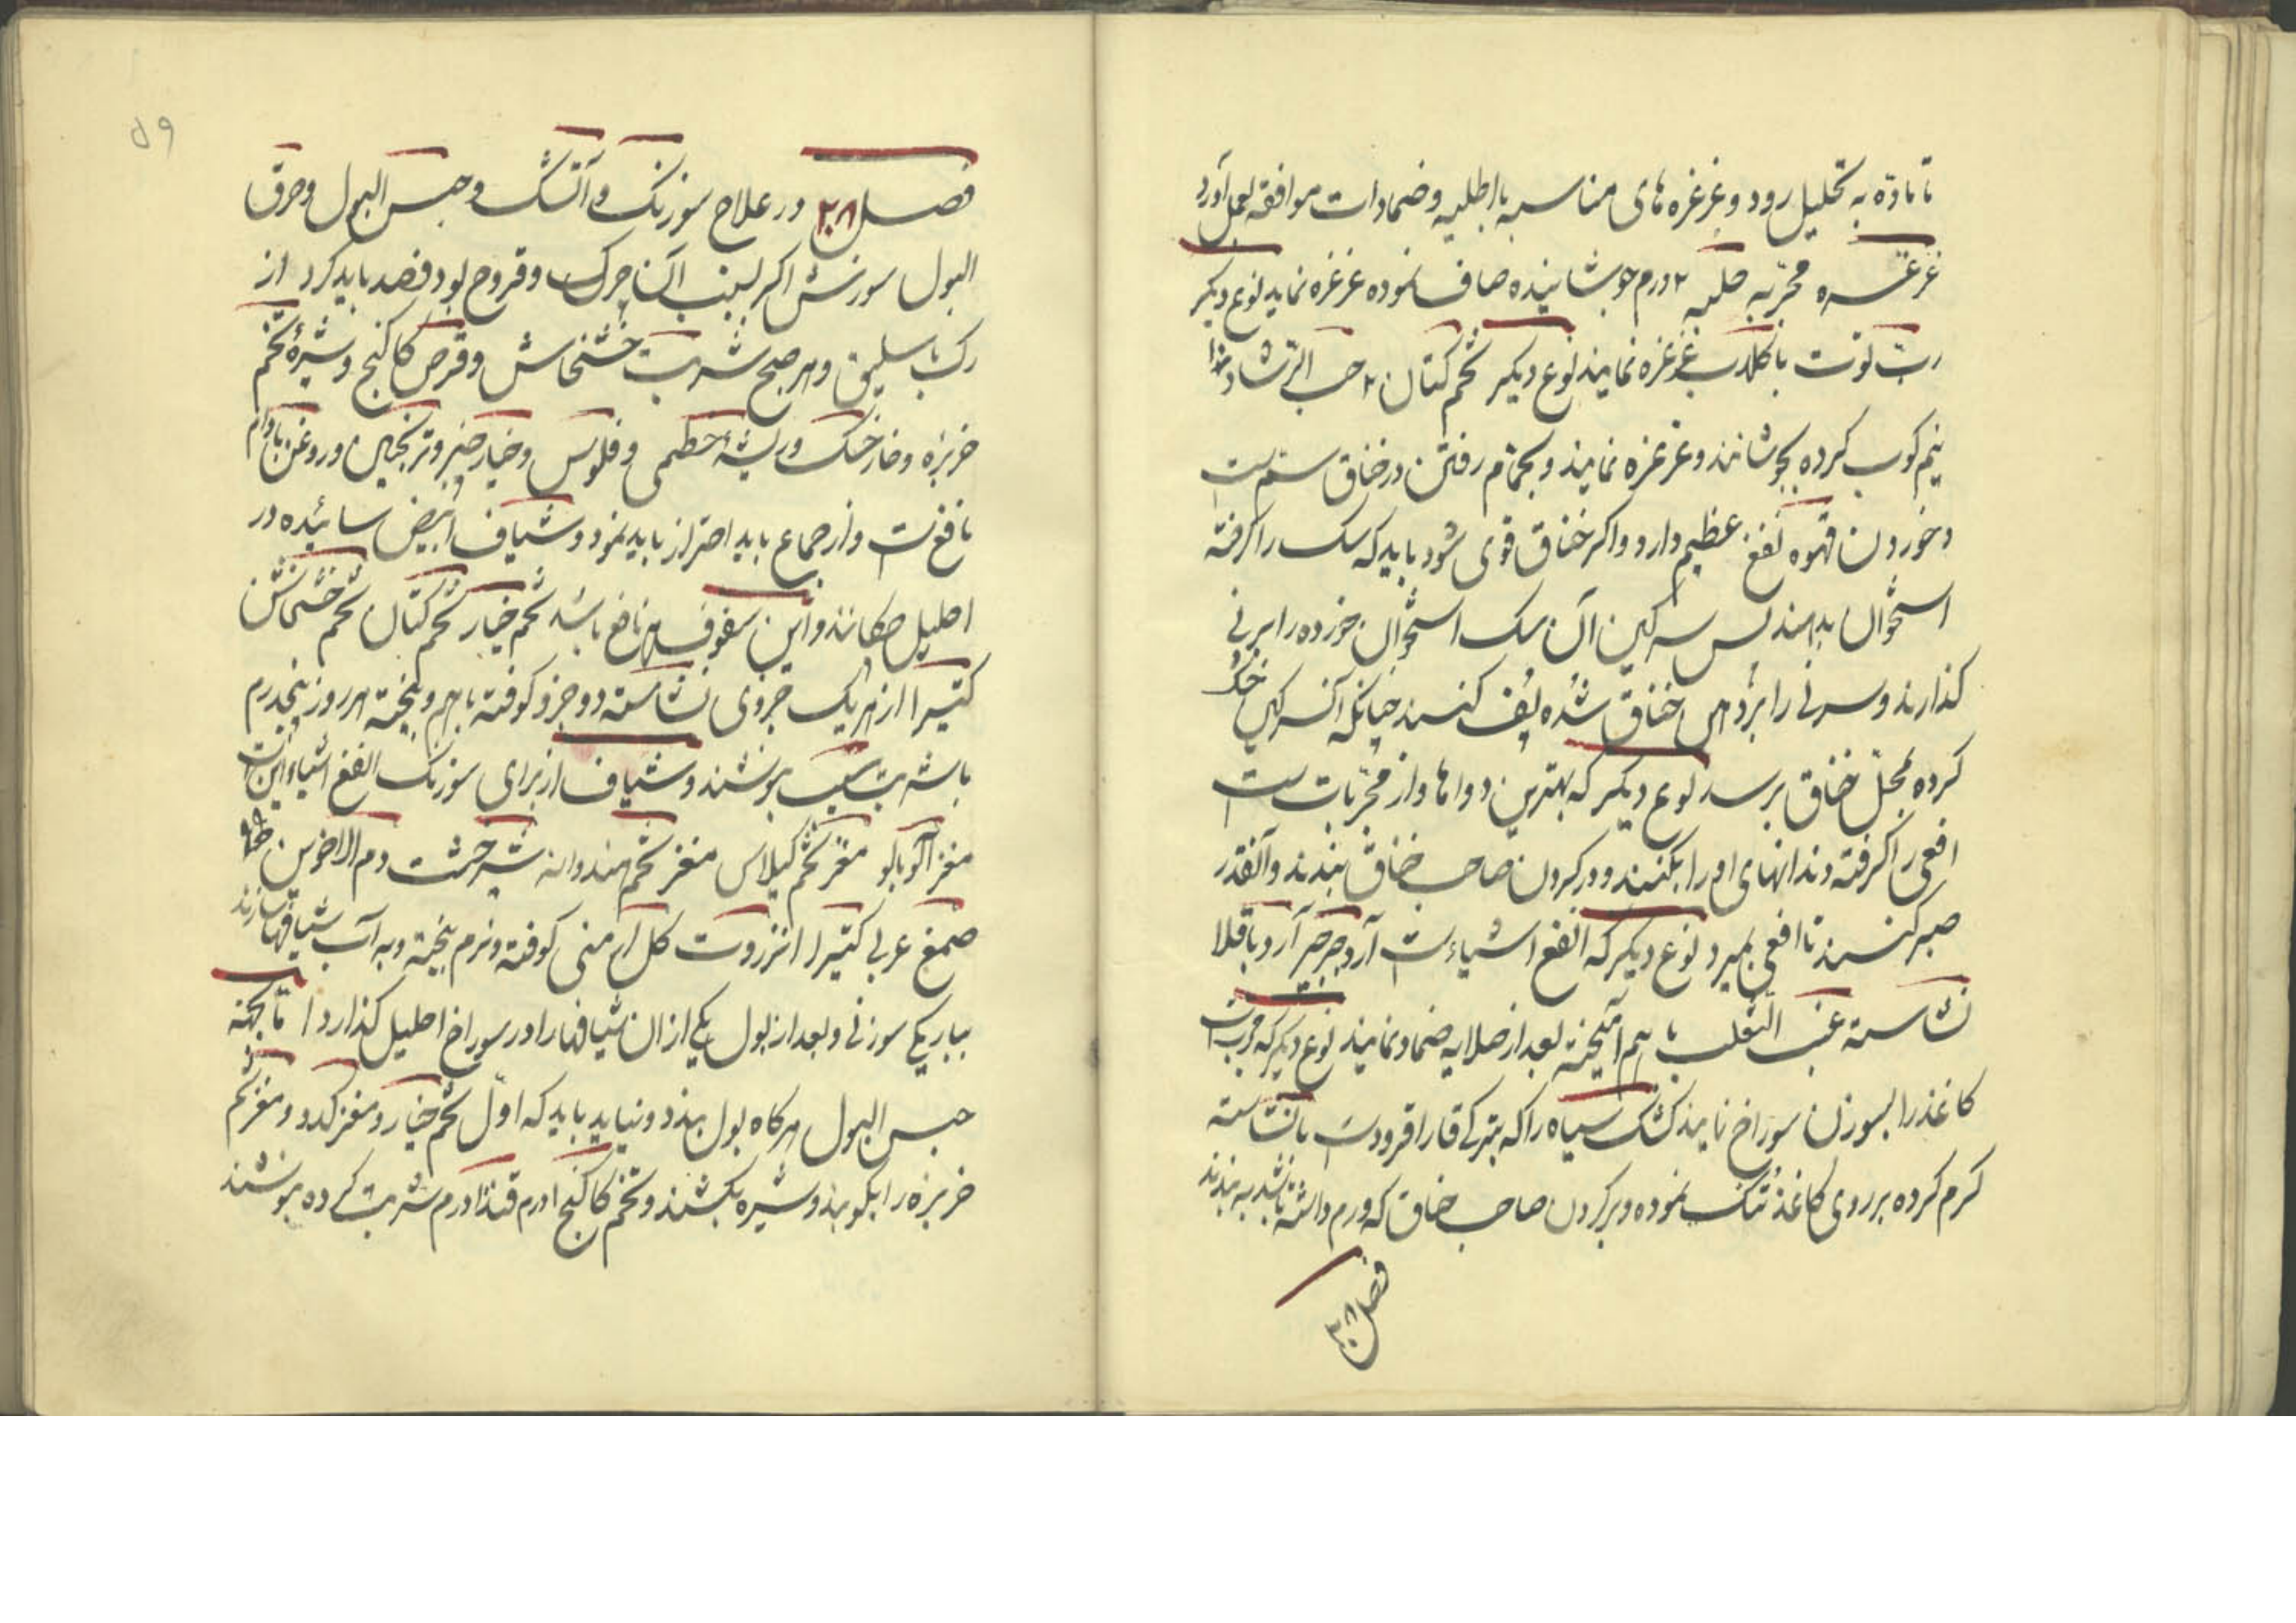 تا ماده به تحلیل رود و غرغره های مناسبه با اطلیه و ضمادات موافقه بعمل آورد
غرغره مجربه حلبه ۲ درم جوشانیده صاف نموده غرغره نماید نوع دیکر
رب توت با کلاب غرغره نمایند نوع دیکر تخم کتان ۲ حب الرشاد
نیم کوب کرده بجوشانند و غرغره نمایند و بحمام رفتن در خناق ستم است
و خوردن قهوه نفع عظیم دارد و اکر خناق قوی شود باید که سک را کرفته
استخوان بدهند پس سرکین آن سک استخوان خورده را بر نی
کذارند و سر نی را بر دهن خناق شده پف کنند چنانکه آن سرکین خشک
کرده بمحل خناق برسد نوع دیکر که بهترین دواها و از مجربات است
افعی را کرفته دندانهای او را بکنند و در کردن صاحب خناق بندند و آنقدر
صبر کنند تا افعی بمیرد نوع دیکر که انفع اشیاءست آرد جرجیر آرد باقلا
نشاسته عنب الثعلب با هم آمیخته بعد از صلایه ضماد نمایند نوع دیکر که مجربست
کاغذ را بسوزن سوراخ نمایند کشک سیاه را که بترکی قارا قرودست با نشاسته
کرم کرده بر روی کاغذ تنک نموده و بر کردن صاحب خناق که ورم داشته باشد به بندند
فصل ۲۸
۵۹
فصل ۲۸ در علاج سوزنک و آتشک و حبس البول و حرق
البول سوزنش اکر بسبب آن چرک و قروح بود فصد باید کرد از
رک باسلیق و هر صبح شربت خشخاش و قرص کاکنج و شیرهٔ تخم
خربزه و خارخسک و ریشهٔ خطمی و فلوس و خیارچنبر و ترنجبین و روغن بادام
نافع است و از جماع باید احتراز باید نمود و شیاف ابیض سائیده در
احلیل چکانند و این سفوف هم نافع باشد تخم خیار تخم کتان تخم خشخاش
کتیرا از هر یک جزوی نشاسته دو جزو کوفته باهم و بیخته هر روز پنجدرم
با شربت سیب بنوشند و شیاف از برای سوزنک انفع اشیاء اینست
مغز آلو بالو مغز تخم کیلاس مغز تخم هندوانه شیرخشت دم الاخوین
صمغ عربی کتیرا انزروت کل ارمنی کوفته و نرم بیخته و به آب شیافها سازند
بباریکی سوزنی و بعد از بول یکی از ان شیافها را در سوراخ احلیل کذارد تا بجهته
حبس البول هرکاه بول بند و نیاید باید که اول تخم خیار و مغز کدو و مغز تخم
خربزه را بکوبند و شیره بکشند و تخم کاکنج ۱ درم قند ۱۰ درم شربت کرده بنوشند